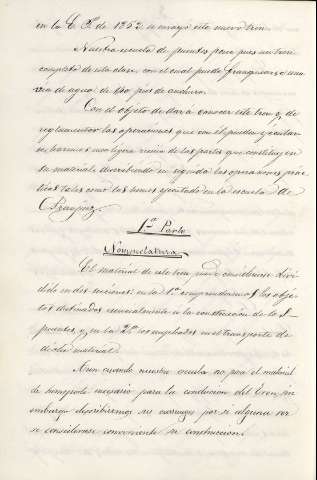 en la E. P.l de 1862 se ensayó este nuevo tren.
Nuestra escuela de puentes posee pues un tren
completo de esta clase, con el cual puede franquearse una
via de agua de 160 pies de anchura.
Con el objeto de dar á conocer este tren y de
reglamentar las operaciones que con él puedan ejecutar-
se, haremos una ligera reseña de las partes que constituyen
su material, describiendo en seguida las operaciones prác-
ticas tales como las hemos ejecutado en la escuela de
Aranjuez.
1.a Parte
Nomenclatura
El material de este tren, puede considerarse divi-
dido en dos secciones: en la 1.a comprenderemos los obje-
tos destinados esencialmente á la construccion de los
puentes, y en la 2.a los empleados en el transporte de
dicho material.
Aun cuando nuestra escuela no posee el material
de transporte necesario para la conduccion del tren, sin
embargo describiremos sus carruages por si alguna vez
se considerase conveniente su construccion.